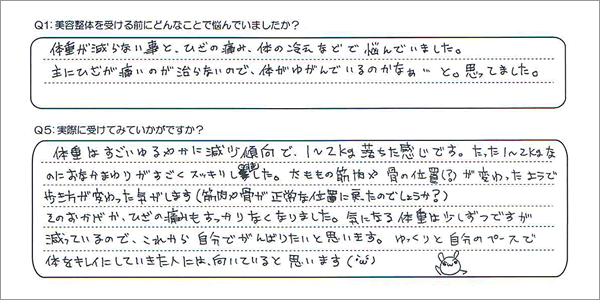 Q1：美容整体を受ける前にどんなことで悩んでいましたか？
体重が減らない事と、ひざの痛み、体の冷えなどで悩んでいました。
主にひざが痛いのが治らないので、体がゆがんでいるのかなぁ…と。思ってました。
Q5：実際に受けてみていかがですか？
体重はすごいゆるやかに減少傾向で、1～2kg落ちた感じです。たった1～2kgな
のにおなかまわりがすごくスッキリしました。太ももの筋肉や骨の位置(?)が変わったようで
歩き方が変わった気がします(筋肉や骨が正常な位置に戻ったのでしょうか？)
そのおかげか、ひざの痛みもすっかりなくなりました。気になる体重は少しずつですが
減っているので、これから自分でがんばりたいと思います。ゆっくりと自分のペースで
体をキレイにしていきた人には、向いていると思います(·ω·)